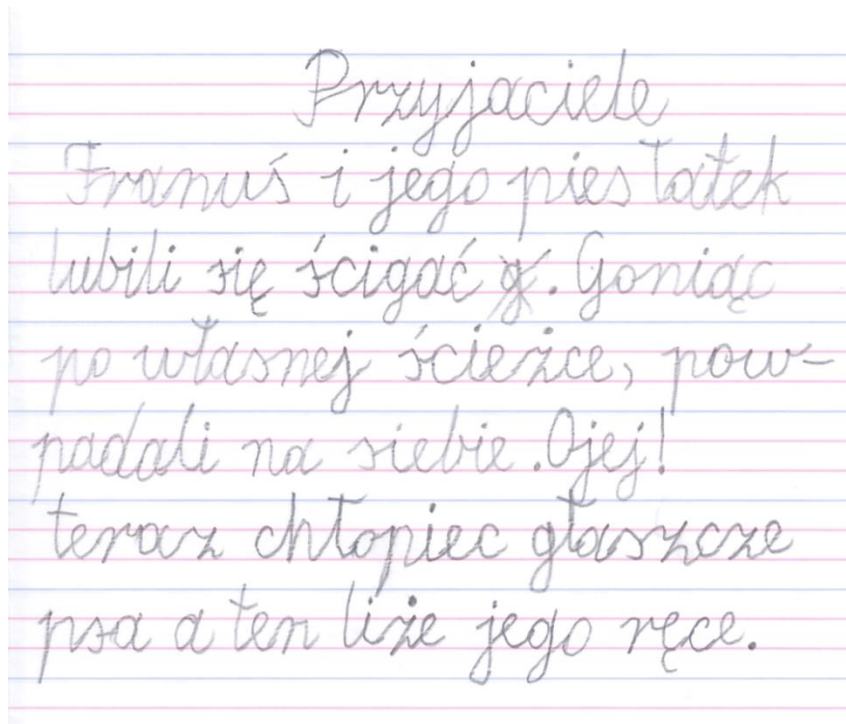 Przyjaciele
Franuś i jego pies Łatek
lubili się ścigać. Goniąc
po własnej ścieżce, pow-
padali na siebie. Ojej!
teraz chłopiec głaszcze
psa a ten liże jego ręce.